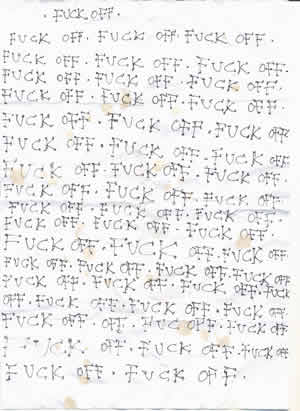 . FUCK OFF.
FUCK OFF. FUCK OFF. FUCK OFF.
FUCK OFF. FUCK OFF. FUCK OFF.
FUCK OFF. FUCK OFF. FUCK OFF.
FUCK OFF. FUCK OFF. FUCK OFF.
FUCK OFF. FUCK OFF. FUCK OFF
FUCK OFF. FUCK OFF. FUCK OFF
FUCK OFF. FUCK OFF. FUCK OFF
FUCK OFF. FUCK OFF. FUCK OFF.
FUCK OFF. FUCK OFF. FUCK OFF.
FUCK OFF. FUCK OFF. FUCK OFF.
FUCK OFF. FUCK OFF. FUCK OFF.
FUCK OFF. FUCK OFF. FUCK OFF. FUCK OFF
FUCK OFF. FUCK OFF. FUCK OFF. FUCK
OFF. FUCK OFF. FUCK OFF. FUCK OFF.
FUCK OFF. OFF. FUCK OFF. FUCK OFF
OFF. FUCK OFF. FUCK OFF
FUCK OFF. FUCK OFF.